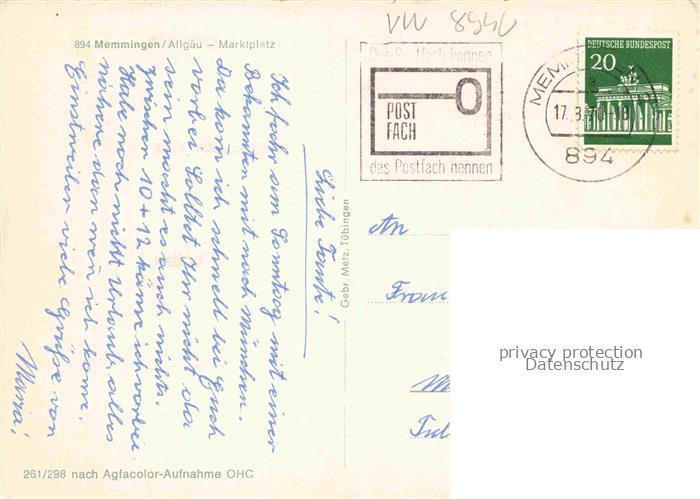 VW 8940
894 Memmingen/Allgäu – Marktplatz
Liebe Tante!
Ich fahr am Sonntag mit einer
Bekannten mit nach München.
Da kom ich schnell bei Euch
vorbei. Solltet Ihr nicht da
sein macht es auch nichts.
Zwischen 10 + 12 käme ich vorbei
Habe noch nicht Urlaub, alles
nähere dann wen ich kome.
Einstweilen viele Grüße von
Maria!
261/298 nach Agfacolor-Aufnahme OHC
Gebr. Metz, Tübingen
Das Postfach kennen
POST
FACH
das Postfach nennen
MEM
17.3.70-18
a
894
DEUTSCHE BUNDESPOST
20
An
Frau
privacy protection
Datenschutz